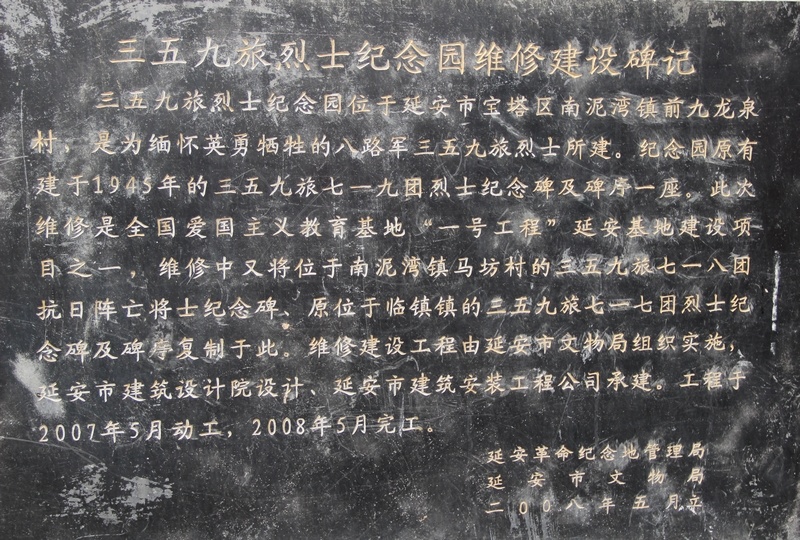 三五九旅烈士纪念园维修建设碑记
三五九旅烈士纪念园位于延安市宝塔区南泥湾镇前九龙泉
村，是为缅怀英勇牺牲的八路军三五九旅烈士所建。纪念园原有
建于1945年的三五九旅七一九团烈士纪念碑及碑庁一座。此次
维修是全国爱国主义教育基地“一号工程”延安基地建设项
目之一，维修中又将位于南泥湾镇马坊村的三五九旅七一八团
抗日阵亡将士纪念碑、原位于临镇镇的三五九旅七一七团烈士纪
念碑及碑庁复制于此。维修建设工程由延安市文物局组织实施，
延安市建筑设计院设计、延安市建筑安装工程公司承建。工程于
2007年5月动工，2008年5月完工。
延安革命纪念地管理局
延安市文物局
二00八年五月立